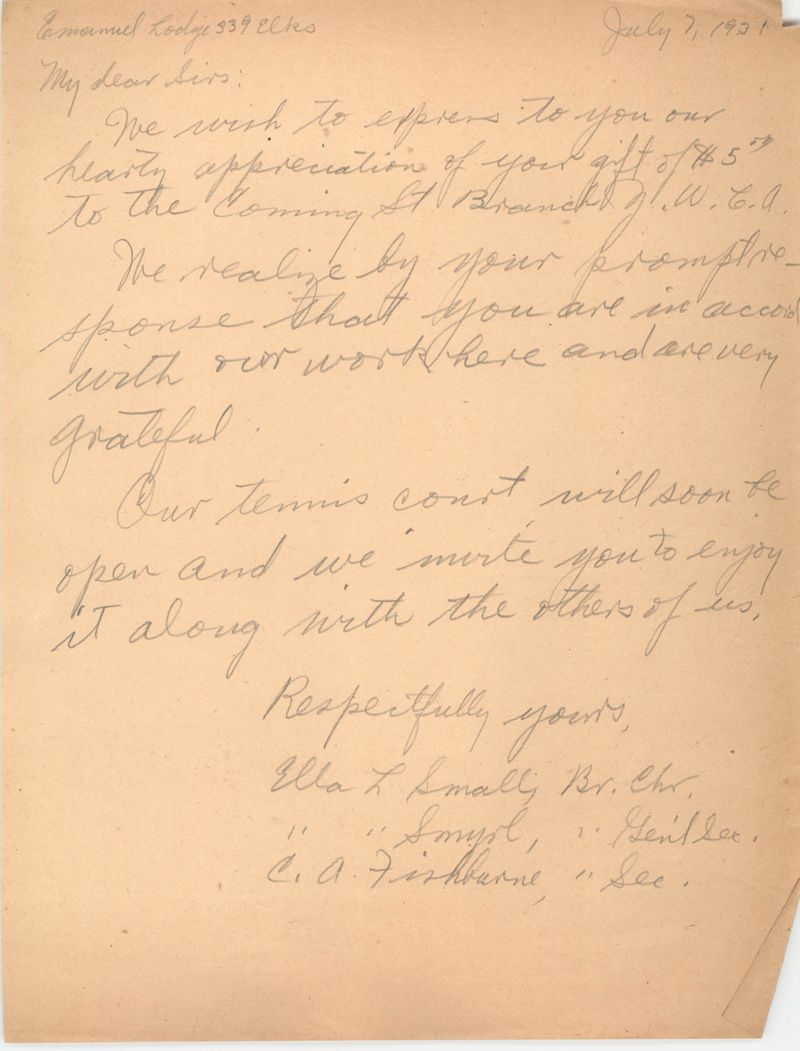 Emanuel Lodge 339 Elks July 7, 1931
My dear Sirs:
We wish to express to you our
hearty appreciation of your gift of $5 00
to the Coming St Branch Y. W. C. A.
We realize by your prompt re-
sponse that you are in accord
with our work here and are very
grateful.
Our tennis court, will soon be
open and we invite you to enjoy
it along with the others of us.
Respectfully yours,
Ella L Small, Br. Chr.
" " Smyrl, " Gen'l Sec.
C. A. Fishburne, " Sec.